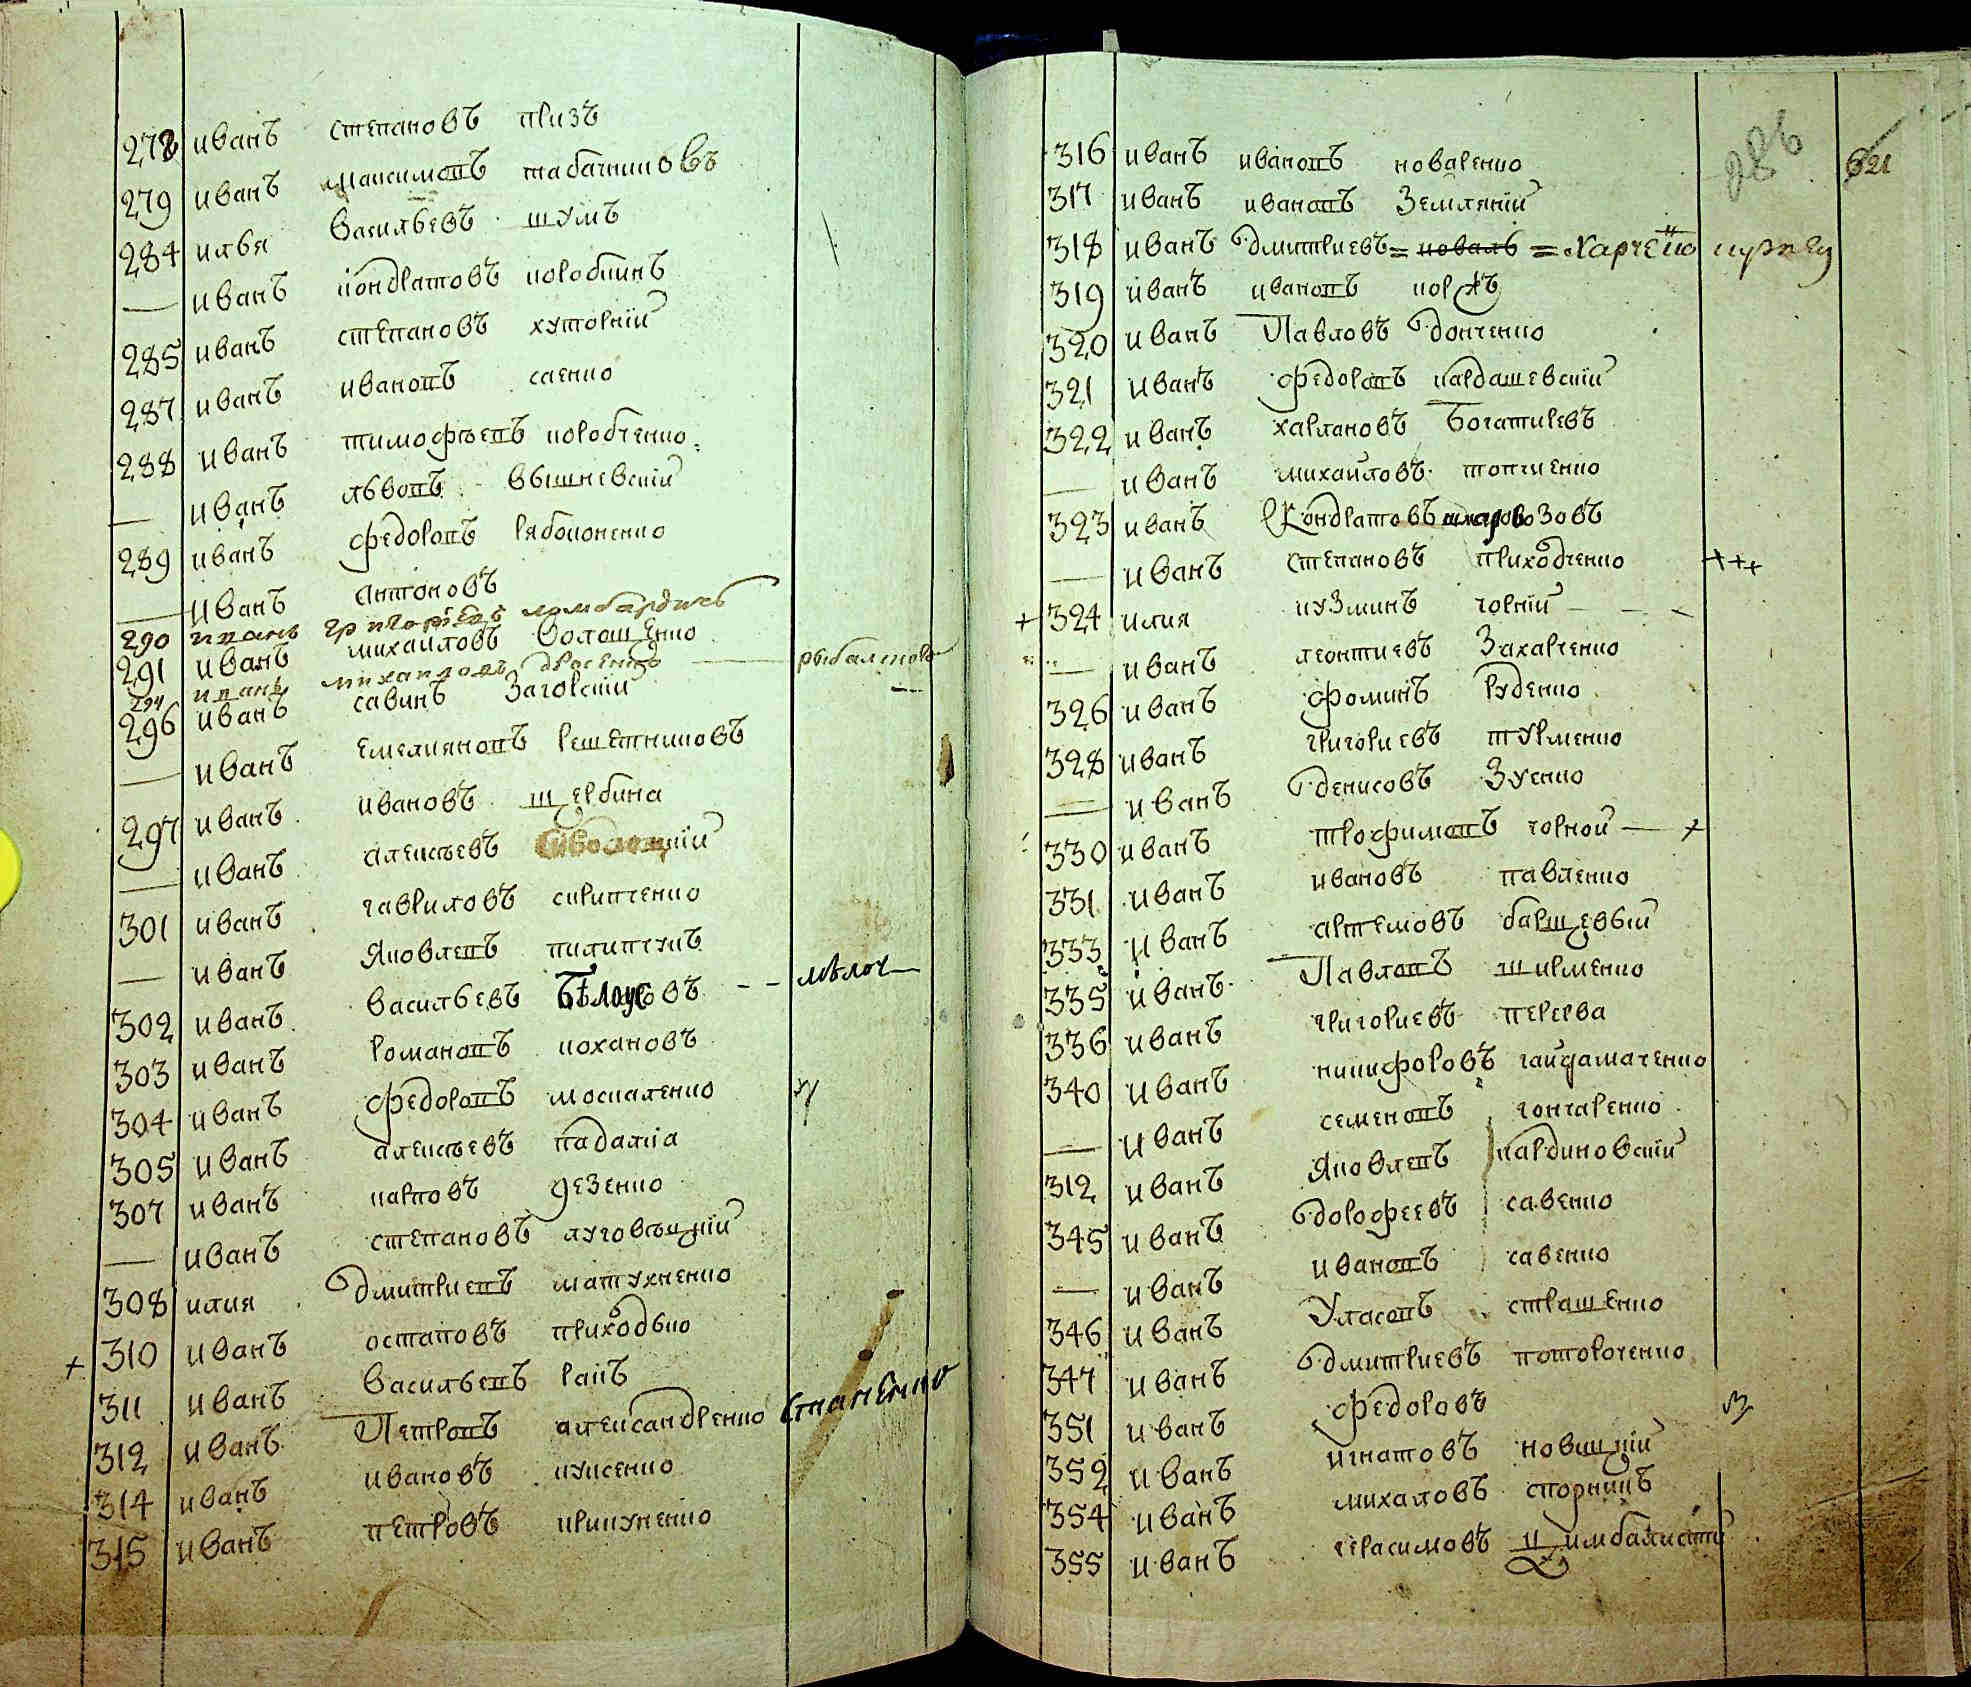 278 иванъ степановъ призъ
279 иванъ максимовъ табачниковъ
284 илья васильевъ шумъ
— иванъ кондратовъ коробкинъ
285 иванъ степановъ хуторній
287 иванъ ивановъ саенко
288 иванъ тимофѣевъ коробченко
— иванъ львовъ вышневскій
289 иванъ федоровъ рябоконенко
— иванъ антоновъ
290 иванъ григорьевъ
291 иванъ михайловъ волошенко
294 иванъ михайловъ — рыбалтово
296 иванъ савинъ загорскій
— иванъ емелияновъ решетниковъ
297 иванъ ивановъ щербина
— иванъ алексѣевъ
301 иванъ гавриловъ скрипченко
— иванъ яковлевъ пилипчукъ
302 иванъ васильевъ Бѣлоусовъ - - мѣлоч
303 иванъ романовъ кохановъ
304 иванъ федоровъ москаленко
305 иванъ алексѣевъ падалка
307 иванъ карповъ дезенко
— иванъ степановъ луговѣцкій
308 илия дмитриевъ матухненко
+ 310 иванъ остаповъ приходько
311 иванъ васильевъ ракъ
312 иванъ Петровъ александренко спаненко
314 иванъ ивановъ куксенко
315 иванъ петровъ крикуненко
621
316 иванъ ивановъ коваренко
317 иванъ ивановъ Земляній
318 иванъ дмитриевъ = коваль = Харченко
319 иванъ ивановъ коржъ
320 иванъ Павловъ донченко
321 иванъ федоровъ кардашевскій
322 иванъ харлановъ Богатиревъ
— иванъ михайловъ топчиенко
323 иванъ Кондратовъ
— иванъ степановъ приходченко +++
+ 324 илия кузминъ чорній — - -
— иванъ леонтиевъ Захарченко
326 иванъ фоминъ руденко
328 иванъ григориевъ турменко
— иванъ денисовъ Зуенко
330 иванъ трофимовъ чорной — +
331 иванъ ивановъ павленко
333 иванъ артемовъ барщевый
335 иванъ Павловъ ширменко
336 иванъ григориевъ перерва
340 иванъ никифоровъ гайдамаченко
— иванъ семеновъ гончаренко
312 иванъ яковлевъ кардиновскій
345 иванъ дорофеевъ савенко
— иванъ ивановъ савенко
346 иванъ Уласовъ страшенко
347 иванъ дмитриевъ потороченко
351 иванъ федоровъ
352 иванъ игнатовъ новицкій
354 иванъ михаловъ сторчикъ
355 иванъ герасимовъ цимбалистій